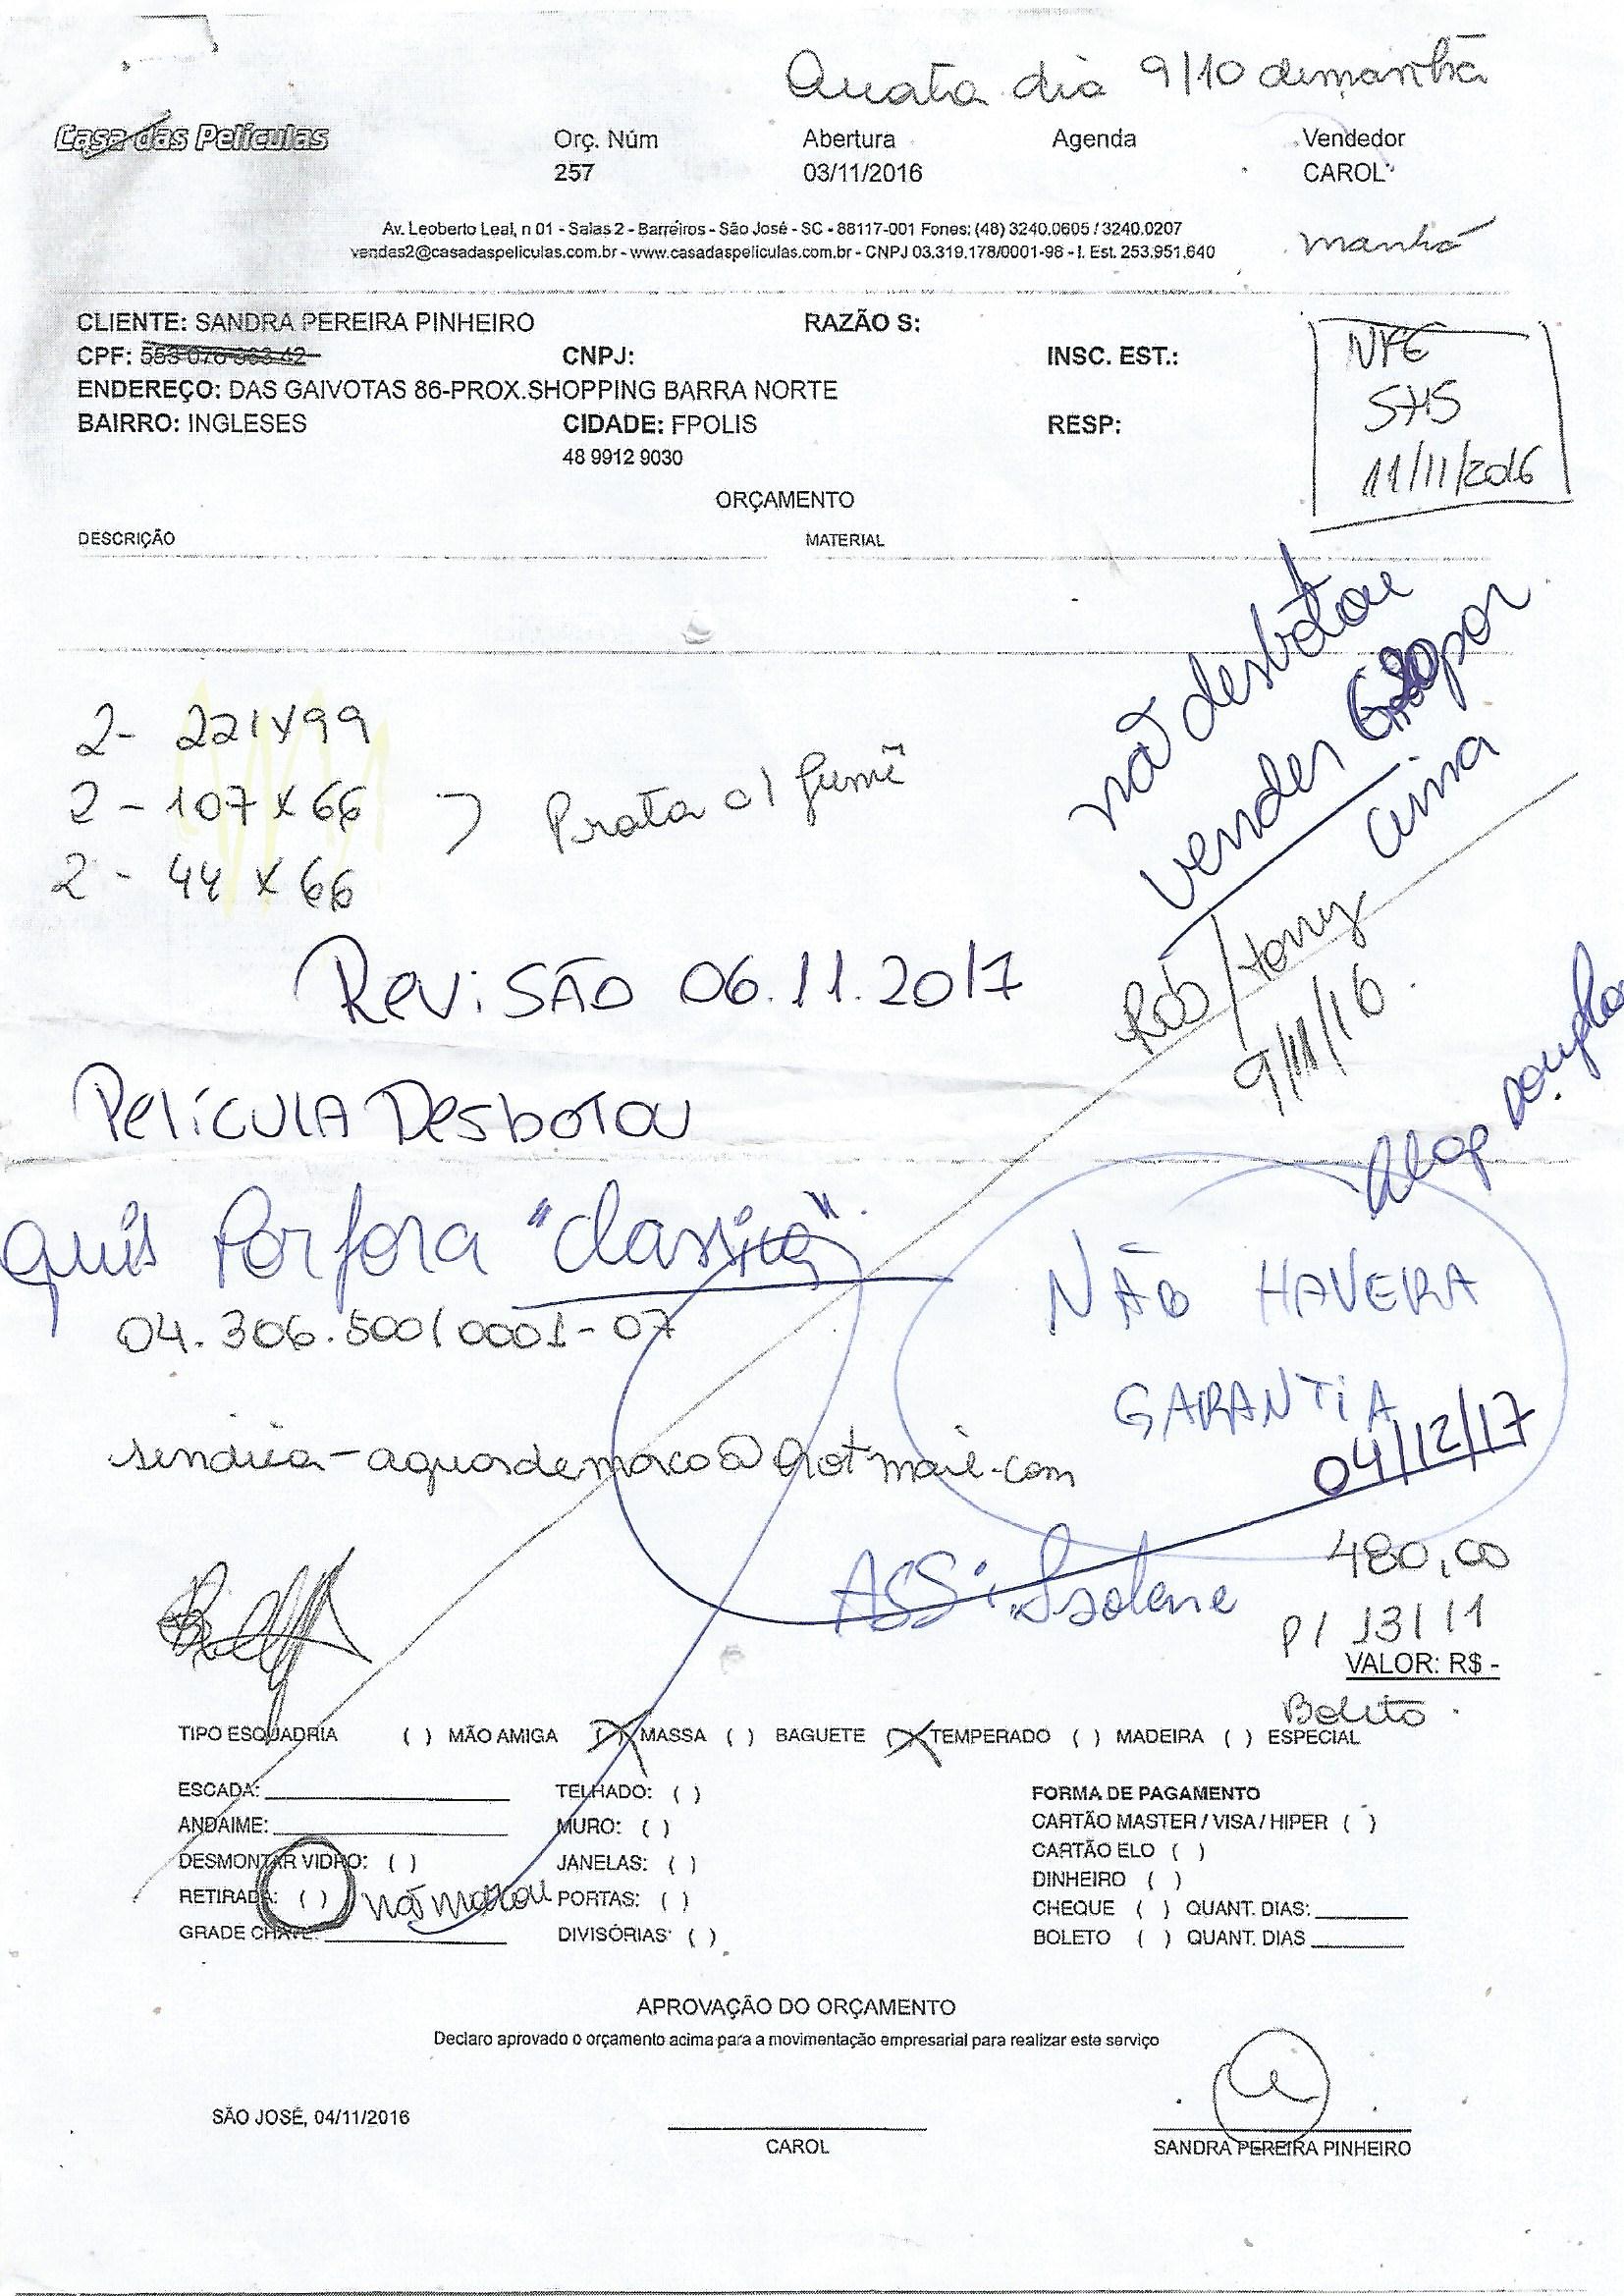 Quarta dia 9/10 demanhã
Casa das Películas
Orç. Núm Abertura Agenda Vendedor
257 03/11/2016 CAROL
Av. Leoberto Leal, n 01 - Salas 2 - Barreiros - São José - SC - 88117-001 Fones: (48) 3240.0605 / 3240.0207
vendas2@casadaspeliculas.com.br - www.casadaspeliculas.com.br - CNPJ 03.319.178/0001-98 - I. Est. 253.951.640
manhã
CLIENTE: SANDRA PEREIRA PINHEIRO RAZÃO S:
CPF: CNPJ: INSC. EST.:
ENDEREÇO: DAS GAIVOTAS 86-PROX.SHOPPING BARRA NORTE
BAIRRO: INGLESES CIDADE: FPOLIS RESP:
48 9912 9030
NFE
11/11/2016
ORÇAMENTO
DESCRIÇÃO MATERIAL
não desbotou
vender por
cima
2- 221X99
2 - 107 X 66
2 - 44 X 66
Prata c/ fumê
9/11/16.
REViSÃO 06.11.2017
PELÍCULA DESBOTOU
quis Por fora "classica".
04.306.500/0001-07
NÃO HAVERA
GARANTiA
04/12/17
ASS:
480,00
P/ 13/11
VALOR: R$ -
Boleto.
TIPO ESQUADRIA ( ) MÃO AMIGA (X) MASSA ( ) BAGUETE (X) TEMPERADO ( ) MADEIRA ( ) ESPECIAL
ESCADA: TELHADO: ( ) FORMA DE PAGAMENTO
ANDAIME: MURO: ( ) CARTÃO MASTER / VISA / HIPER ( )
DESMONTAR VIDRO: ( ) JANELAS: ( ) CARTÃO ELO ( )
RETIRADA: ( ) PORTAS: ( ) DINHEIRO ( )
GRADE CHAVE: DIVISÓRIAS ( ) CHEQUE ( ) QUANT. DIAS:
BOLETO ( ) QUANT. DIAS
APROVAÇÃO DO ORÇAMENTO
Declaro aprovado o orçamento acima para a movimentação empresarial para realizar este serviço
SÃO JOSÉ, 04/11/2016
CAROL SANDRA PEREIRA PINHEIRO